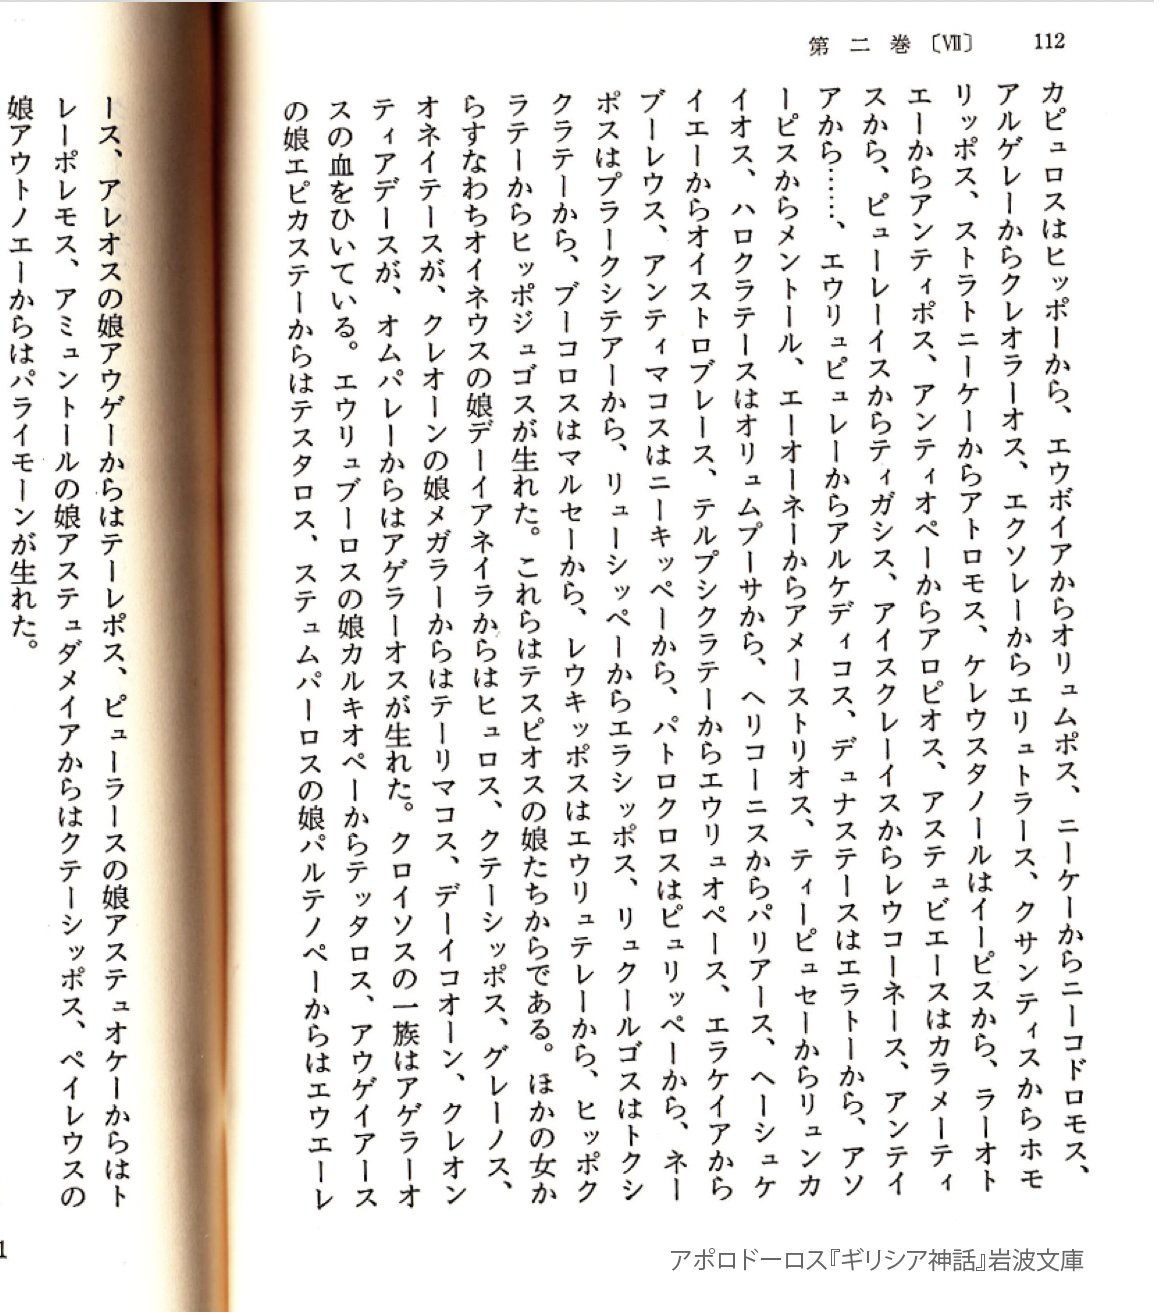 第二巻〔Ⅶ〕 112
カピュロスはヒッポーから、エウボイアからオリュムポス、ニーケーからニーコドロモス、
アルゲレーからクレオラーオス、エクソレーからエリュトラース、クサンティスからホモ
リッポス、ストラトニーケーからアトロモス、ケレウスタノールはイーピスから、ラーオト
エーからアンティポス、アンティオペーからアロピオス、アステュビエースはカラメーティ
スから、ピューレーイスからティガシス、アイスクレーイスからレウコーネース、アンテイ
アから……、エウリュピュレーからアルケディコス、デュナステースはエラトーから、アソ
ーピスからメントール、エーオーネーからアメーストリオス、ティーピュセーからリュンカ
イオス、ハロクラテースはオリュムプーサから、ヘリコーニスからパリアース、ヘーシュケ
イエーからオイストロブレース、テルプシクラテーからエウリュオペース、エラケイアから
ブーレウス、アンティマコスはニーキッペーから、パトロクロスはピュリッペーから、ネー
ポスはプラークシテアーから、リューシッペーからエラシッポス、リュクールゴスはトクシ
クラテーから、ブーコロスはマルセーから、レウキッポスはエウリュテレーから、ヒッポク
ラテーからヒッポジュゴスが生れた。これらはテスピオスの娘たちからである。ほかの女か
らすなわちオイネウスの娘デーイアネイラからはヒュロス、クテーシッポス、グレーノス、
オネイテースが、クレオーンの娘メガラーからはテーリマコス、デーイコオーン、クレオン
ティアデースが、オムパレーからはアゲラーオスが生れた。クロイソスの一族はアゲラーオ
スの血をひいている。エウリュブーロスの娘カルキオペーからテッタロス、アウゲイアース
の娘エピカステーからはテスタロス、ステュムパーロスの娘パルテノペーからはエウエーレ
ース、アレオスの娘アウゲーからはテーレポス、ピューラースの娘アステュオケーからはト
レーポレモス、アミュントールの娘アステュダメイアからはクテーシッポス、ペイレウスの
娘アウトノエーからはパライモーンが生れた。
1
アポロドーロス『ギリシア神話』岩波文庫